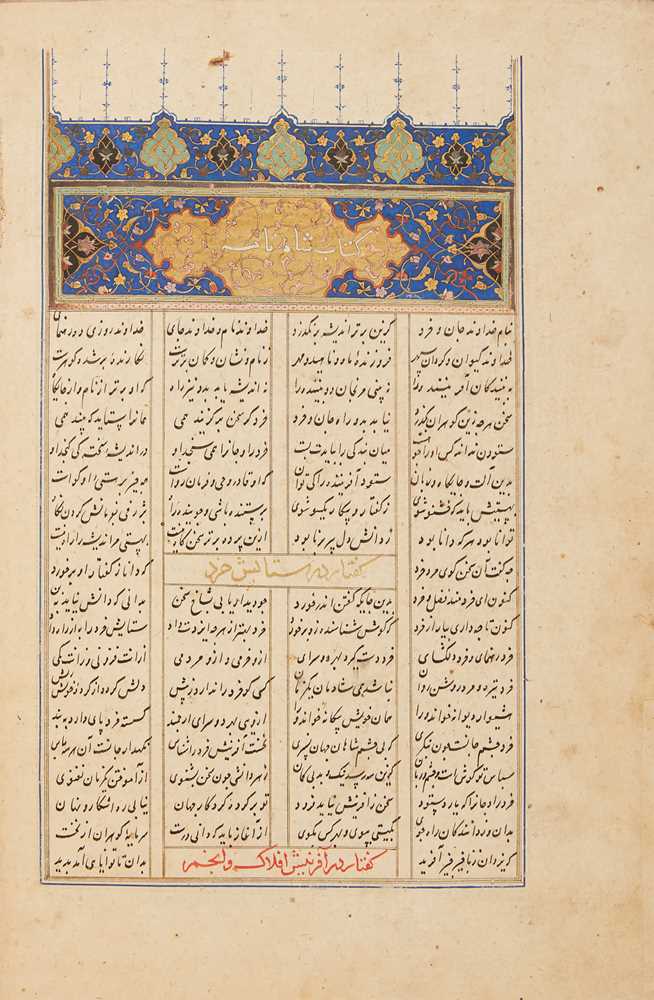 کتاب شاه نامه
بنام خداوند جان و خرد کزین برتر اندیشه برنگذرد خداوند نام و خداوند جای خداوند روزی ده رهنمای
خداوند کیوان و گردان سپهر فروزندهٔ ماه و ناهید و مهر ز نام و نشان و گمان برترست نگارندهٔ برشده گوهرست
به بینندگان آفریننده را نه بینی مرنجان دو بیننده را نه اندیشه یابد بدو نیز راه که او برتر از نام و از جایگاه
سخن هرچه زین گوهران بگذرد نیابد بدو راه جان و خرد خرد گر سخن برگزیند همی همانرا ستاید که بیند همی
ستودن نداند کس او را چو هست میان بندگی را ببایدت بست خرد را و جانرا همی سنجد او در اندیشهٔ سخته کی گنجد او
بدین آلت و جایگاه و زبان ستود آفریننده را کی توان که او قادر و حی و فرمان رواست همه چیز بر هستی او گواست
بهستیش باید که خستو شوی ز گفتار و پیکار یکسو شوی پرستنده باشی و جوینده راه بژرفی بفرمانش کردن نگاه
توانا بود هر که دانا بود ز دانش دل پیر برنا بود ازین پرده برتر سخن گاه نیست بهستی مر اندیشه را راه نیست
چه گفت آن سخن گوی مرد خرد که دانا ز گفتار او بر خورد
گفتار در ستایش خرد
کنون ای خردمند فضل خرد بدین جایگه گفتن اندر خورد چو دیدار یابی بشاخ سخن بدانی که دانش نیاید به بن
کنون تا چه داری بیار از خرد که گوش شناسنده زو برخورد خرد بهتر از هرچه ایزدت داد ستایش خرد را به از راه داد
خرد رهنمای و خرد دلگشای خرد دست گیرد بهر دو سرای ازو خرمی و ازو مردمی ازانت فزونی وزانت کمی
خرد تیره و مرد روشن روان نباشد همی شادمان یک زمان کسی کو خرد را ندارد ز پیش دلش گردد از کردهٔ خویش ریش
هشیوار دیوانه خواند ورا همان خویش بیگانه خواند ورا ازوی بهر دو سرای ارجمند گسسته خرد پای دارد به بند
خرد چشم جانست چون بنگری که بی چشم جهان نسپری نخست آفرینش خرد را شناس نگهدار جانست آن سه پاس
سپاس تو گوش است و چشم و زبان کزین سه رسد نیک و بد بی گمان ز هر دانشی چون سخن بشنوی از آموختن یک زمان نغنوی
خرد را و جانرا که یارد ستود سخن ز آفرینش نیاید فرود تویی کردهٔ کردگار جهان نیابی ره آشکار و نهان
بدان دانندگان راه جوی بگیتی بپوی و بهر کس بگوی از آغاز باید که دانی درست سرمایهٔ گوهران از نخست
که یزدان ز ناچیز چیز آفرید بدان تا توانایی آمد پدید
گفتار در آفرینش افلاک و انجم